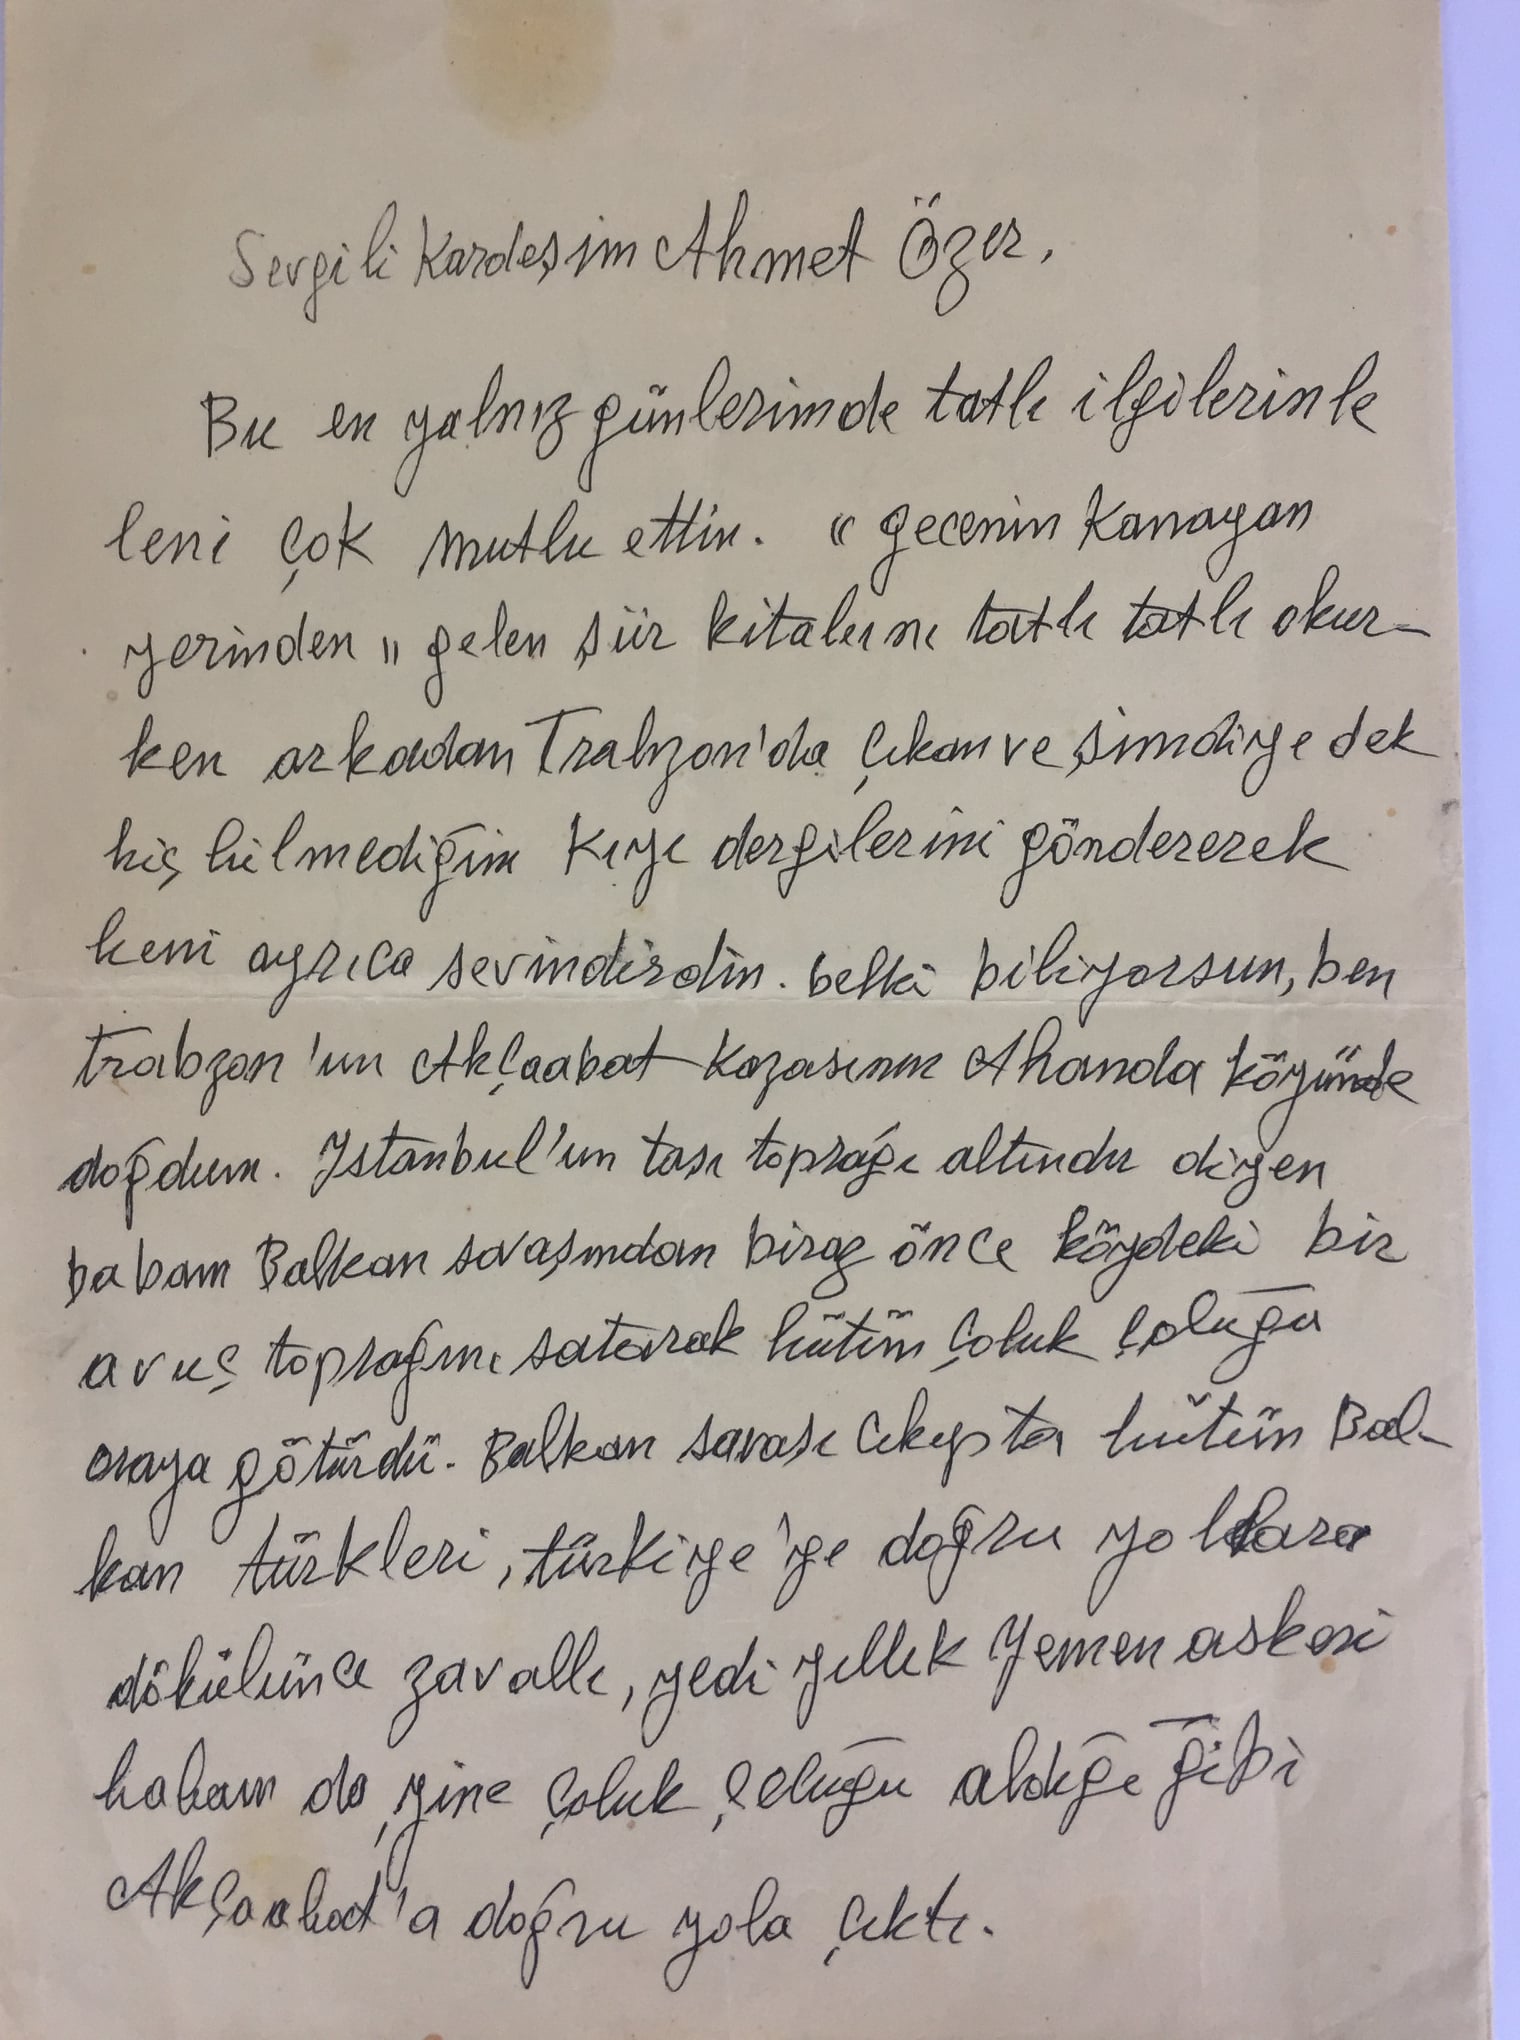 Sevgili Kardeşim Ahmet Özer,
Bu en yalnız günlerimde tatlı ilgilerinle
beni çok mutlu ettin. "gecenin Kanayan
yerinden" gelen şiir kitabını tatlı tatlı okur-
ken arkadan Trabzon'da çıkan ve şimdiye dek
hiç bilmediğim Kıyı dergilerini göndererek
beni ayrıca sevindirdin. belki biliyorsun, ben
Trabzon'un Akçaabat Kazasının Ahanda köyünde
doğdum. İstanbul'un taşı toprağı altındır diyen
babam Balkan savaşından biraz önce köydeki bir
avuç toprağını satarak bütün çoluk çoluğu
oraya götürdü. Balkan savaşı çıkıpta bütün Bal-
kan türkleri, türkiye'ye doğru yollara
dökülünce zavallı, yedi yıllık Yemen askeri
babam da yine çoluk çoluğu aldığı gibi
Akçaabat'a doğru yola çıktı.